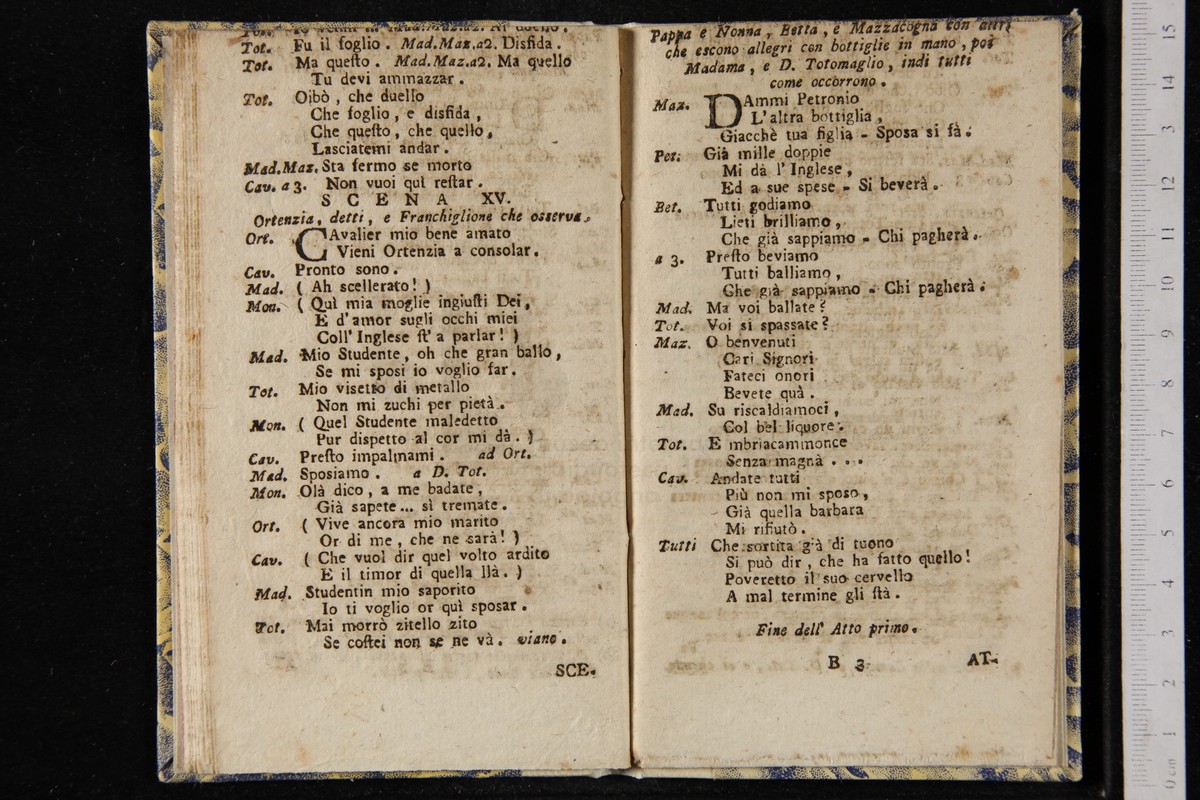 Tot. Fu il foglio . Mad.Maz.a2. Disfida .
Tot. Ma questo . Mad.Maz.a2. Ma quello
Tu devi ammazzar .
Tot. Oibò , che duello
Che foglio , e disfida ,
Che questo , che quello ,
Lasciatemi andar .
Mad.Maz. Sta fermo se morto
Cav. a 3. Non vuoi quì restar .
S C E N A XV.
Ortenzia, detti, e Franchiglione che osserva.
Ort. CAvalier mio bene amato
Vieni Ortenzia a consolar .
Cav. Pronto sono .
Mad. ( Ah scellerato ! )
Mon. ( Quì mia moglie ingiusti Dei ,
E d' amor sugli occhi miei
Coll' Inglese st' a parlar ! )
Mad. Mio Studente , oh che gran ballo ,
Se mi sposi io voglio far .
Tot. Mio visetto di metallo
Non mi zuchi per pietà .
Mon. ( Quel Studente maledetto
Pur dispetto al cor mi dà . )
Cav. Presto impalmami . ad Ort.
Mad. Sposiamo . a D. Tot.
Mon. Olà dico , a me badate ,
Già sapete ... sì tremate .
Ort. ( Vive ancora mio marito
Or di me , che ne sarà ! )
Cav. ( Che vuol dir quel volto ardito
E il timor di quella llà . )
Mad. Studentin mio saporito
Io ti voglio or quì sposar .
Tot. Mai morrò zitello zito
Se costei non se ne và . viano .
SCE-
Pappa e Nonna , Betta , e Mazzacogna con altri
che escono allegri con bottiglie in mano , poi
Madama , e D. Totomaglio , indi tutti
come occorrono .
Maz. DAmmi Petronio
L' altra bottiglia ,
Giacchè tua figlia - Sposa si fà .
Pet. Già mille doppie
Mi dà l' Inglese ,
Ed a sue spese - Si beverà .
Bet. Tutti godiamo
Lieti brilliamo ,
Che già sappiamo - Chi pagherà .
a 3. Presto beviamo
Tutti balliamo ,
Che già sappiamo - Chi pagherà .
Mad. Ma voi ballate ?
Tot. Voi si spassate ?
Maz. O benvenuti
Cari Signori
Fateci onori
Bevete quà .
Mad. Su riscaldiamoci ,
Col bel liquore .
Tot. E mbriacammonce
Senza magnà . . .
Cav. Andate tutti
Più non mi sposo ,
Già quella barbara
Mi rifiutò .
Tutti Che sortita già di tuono
Si può dir , che ha fatto quello !
Poveretto il suo cervello
A mal termine gli stà .
Fine dell' Atto primo .
B 3
AT-